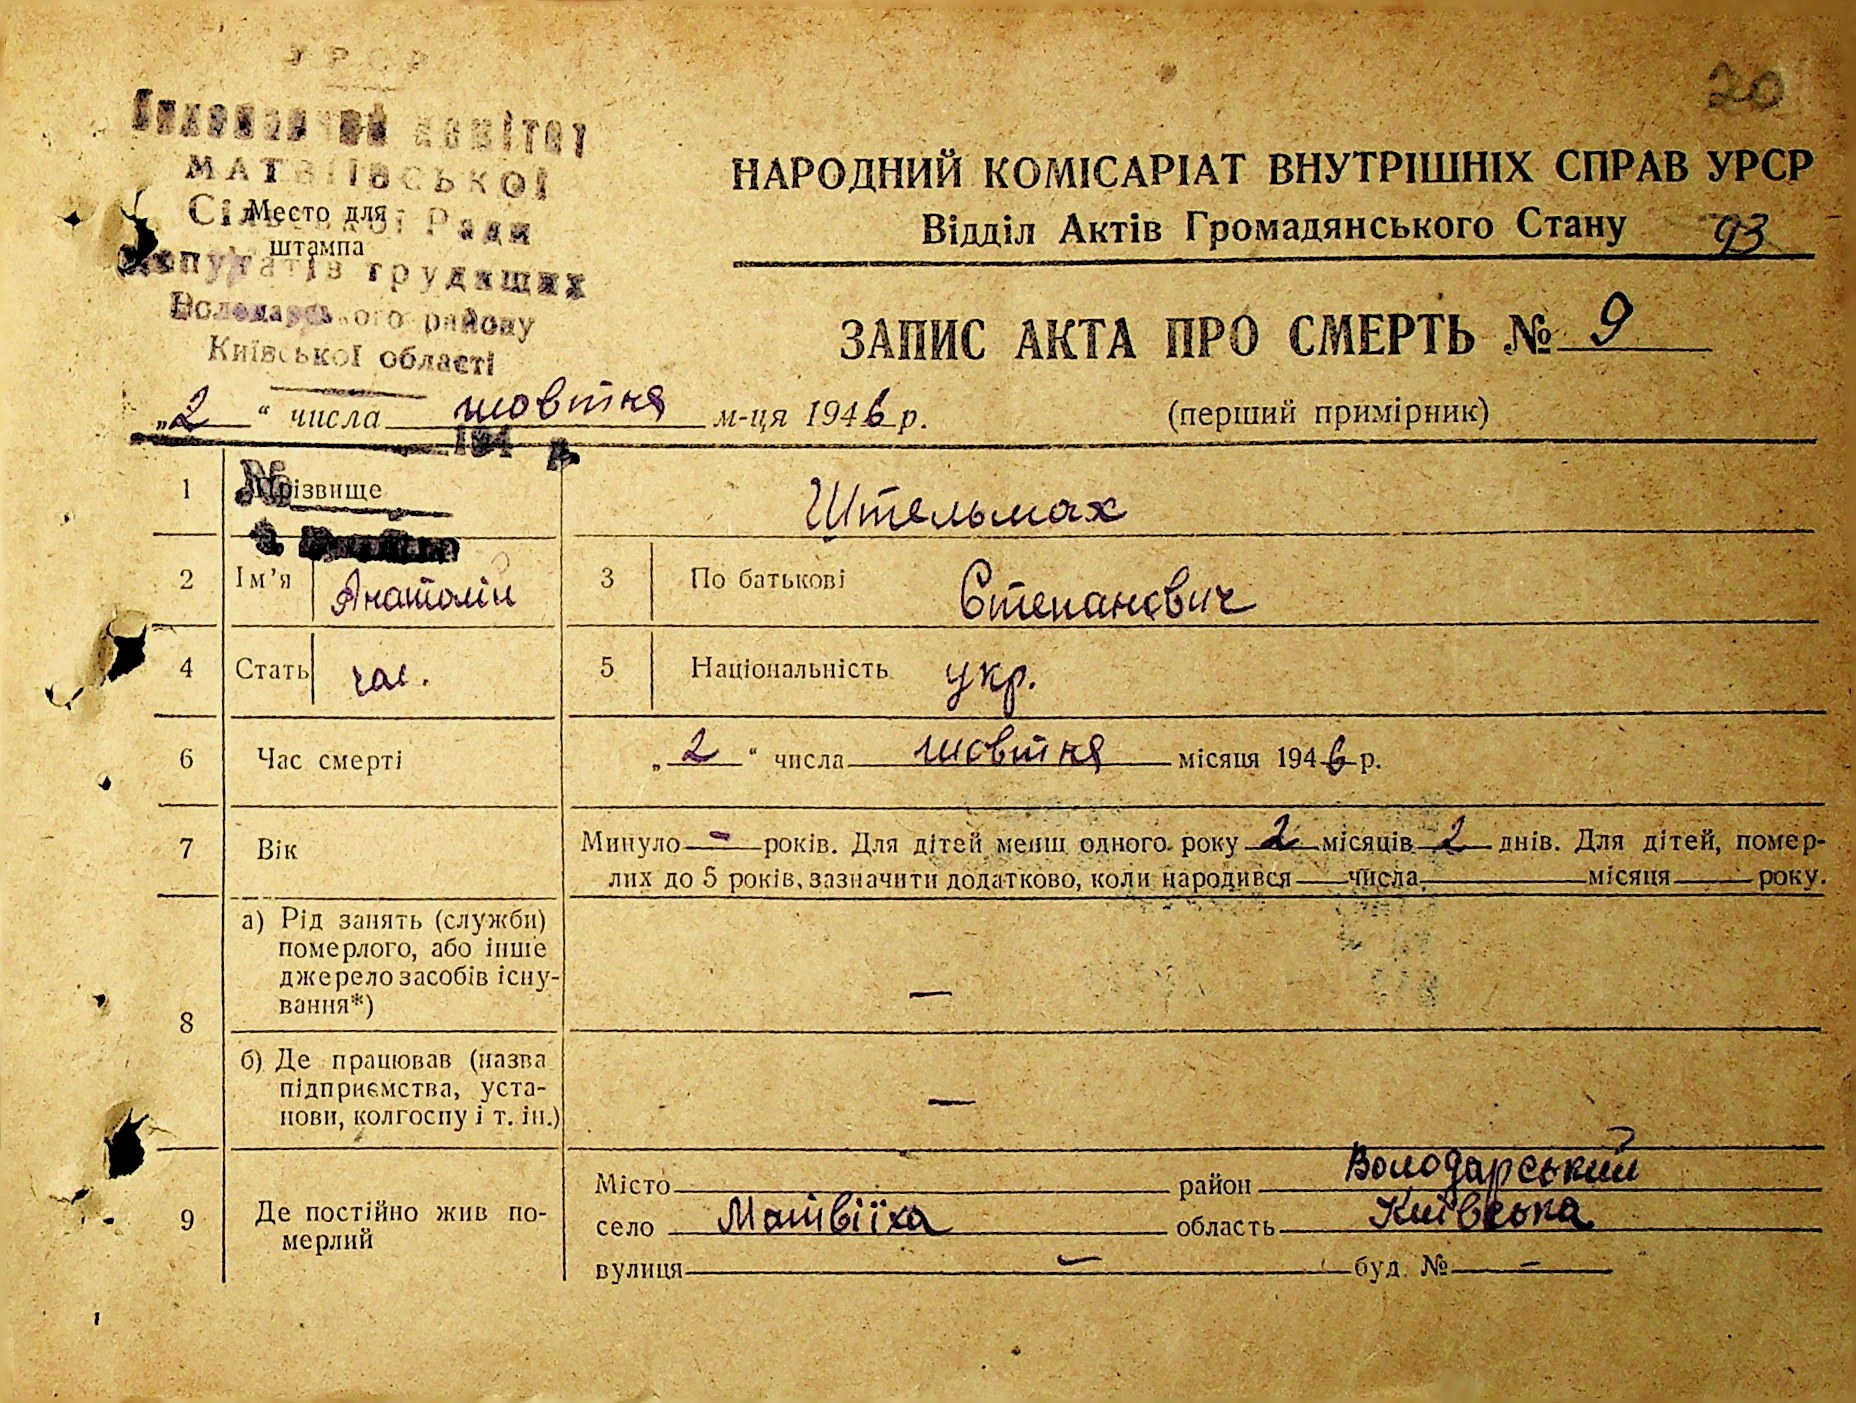 УРСР
Виконавчий комітет
МАТВІЇВСЬКОЇ
Сільської Ради
Место для
штампа
депутатів трудящих
Володарського району
Київської області
20
НАРОДНИЙ КОМІСАРІАТ ВНУТРІШНІХ СПРАВ УРСР
Відділ Актів Громадянського Стану 93
ЗАПИС АКТА ПРО СМЕРТЬ № 9
„2“ числа жовтня м-ця 1946 р.
(перший примірник)
194 р.
1 Прізвище Штельмах
№
2 Ім’я Анатолій 3 По батькові Степанович
4 Стать чол. 5 Національність укр.
6 Час смерті „2“ числа жовтня місяця 1946 р.
7 Вік Минуло - років. Для дітей менш одного року 2 місяців 2 днів. Для дітей, помер-
лих до 5 років, зазначити додатково, коли народився числа місяця року.
8 а) Рід занять (служби)
померлого, або інше
джерело засобів існу-
вання*) —
б) Де працював (назва
підприємства, уста-
нови, колгоспу і т. ін.) —
9 Де постійно жив по-
мерлий
Місто район Володарський
село Матвіїха область Київська
вулиця — буд. № —